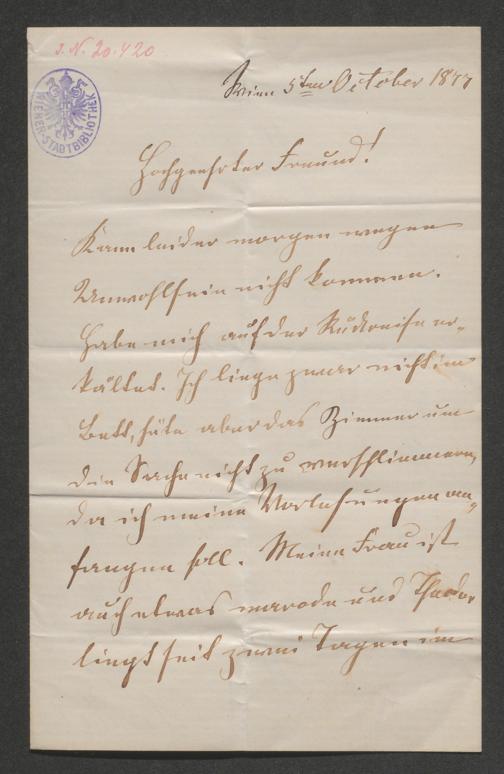 J. N. 20.420
WIENER-STADTBIBLIOTHEK
Wien 5ten October 1877
Hochgeehrter Freund!
Kann leider morgen wegen
Unwohlsein nicht kommen.
Habe mich auf der Rückreise er-
kältet. Ich liege zwar nicht im
Bett, hüte aber das Zimmer um
die Sache nicht zu verschlimmern,
da ich meine Vorlesungen an-
fangen soll. Meine Frau ist
auch etwas marode und Theodor
liegt seit zwei Tagen im